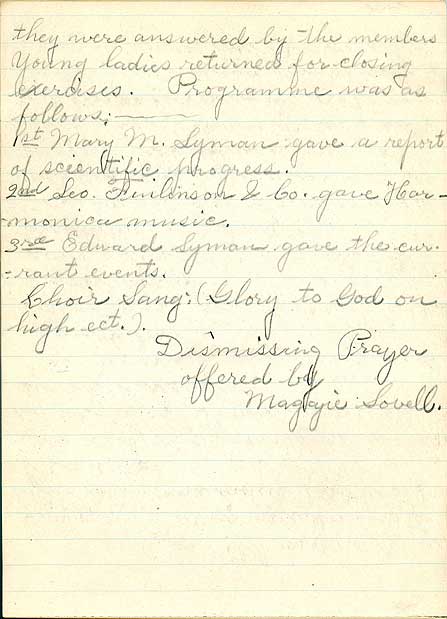 they were answered by the members
Young ladies returned for closing
exercises. Programme was as
follows:
1st Mary M. Lyman gave a report
of scientific progress.
2nd Geo. Finlinson & Co. gave Har-
-monica music.
3rd Edward Lyman gave the cur-
-rant events.
Choir Sang: (Glory to God on
high ect.).
Dismissing Prayer
offered by
Maggie Lovell.